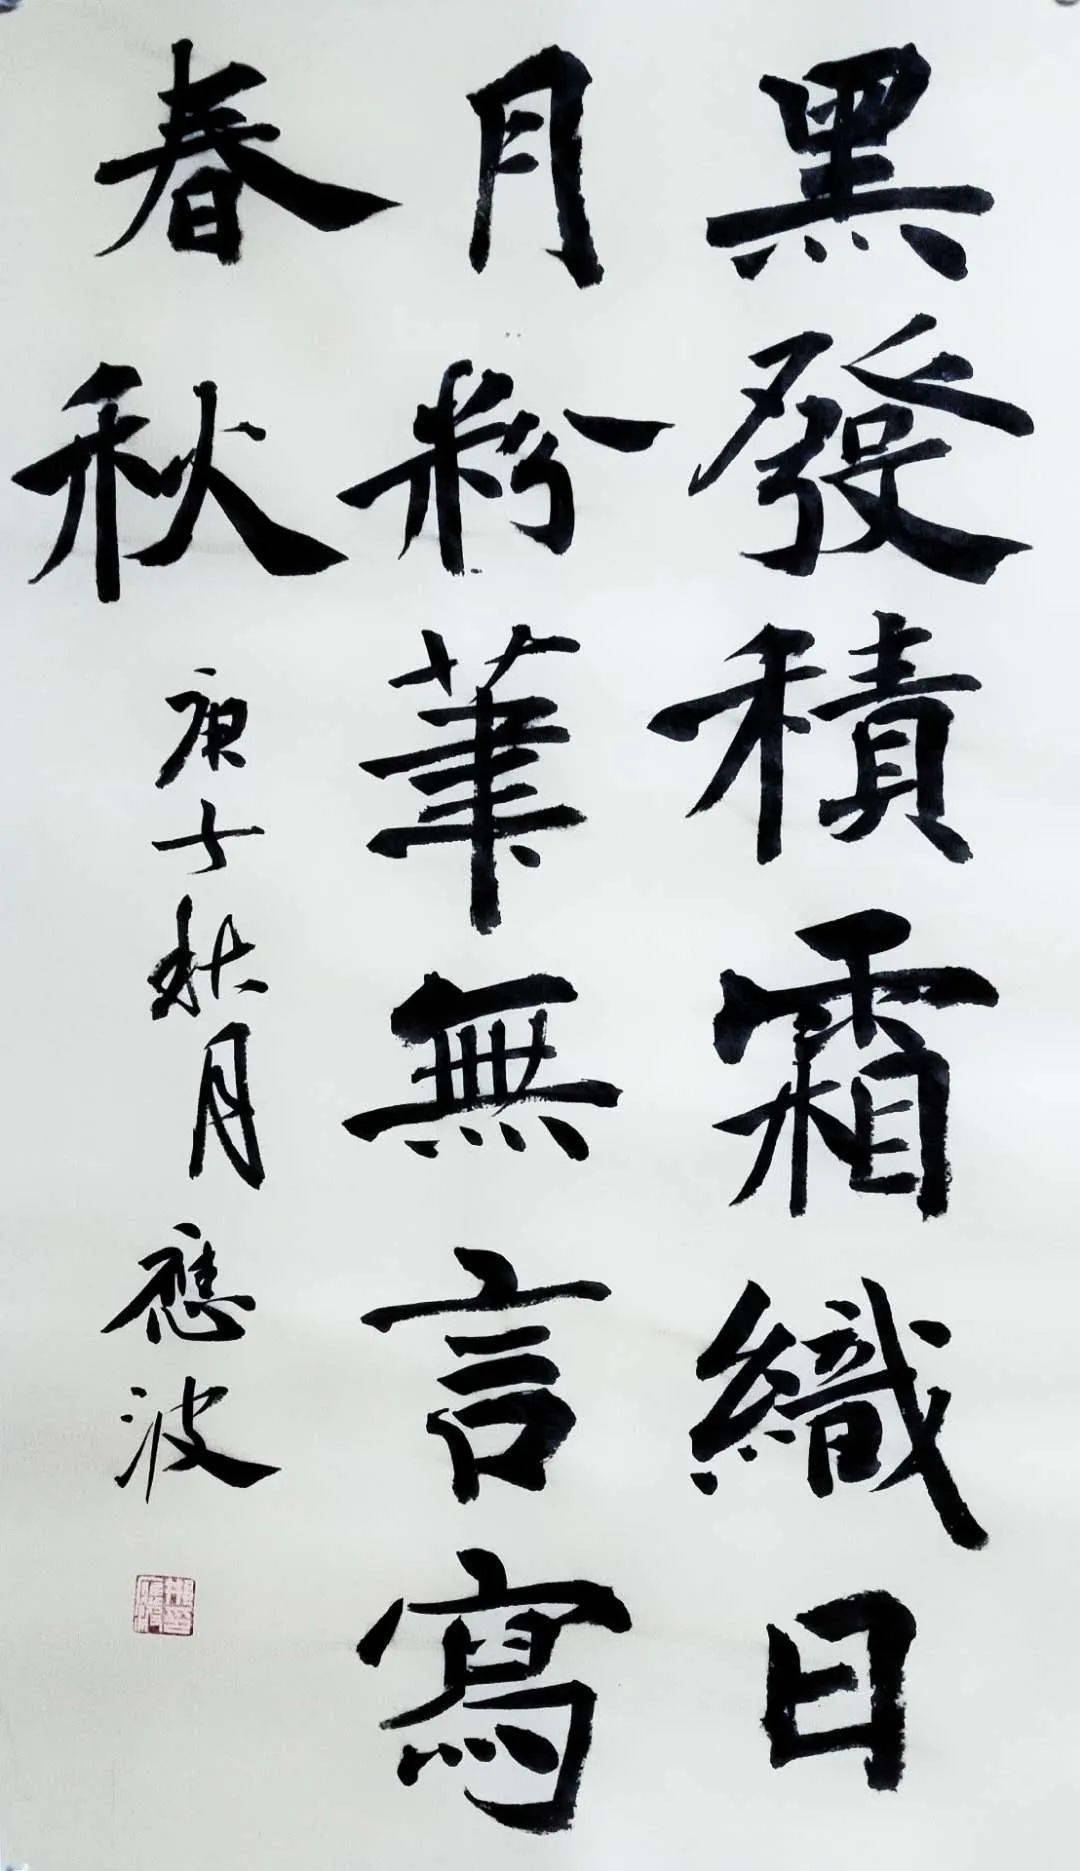 黑發積霜織日
月粉筆無言寫
春秋
庚子秋月
應波